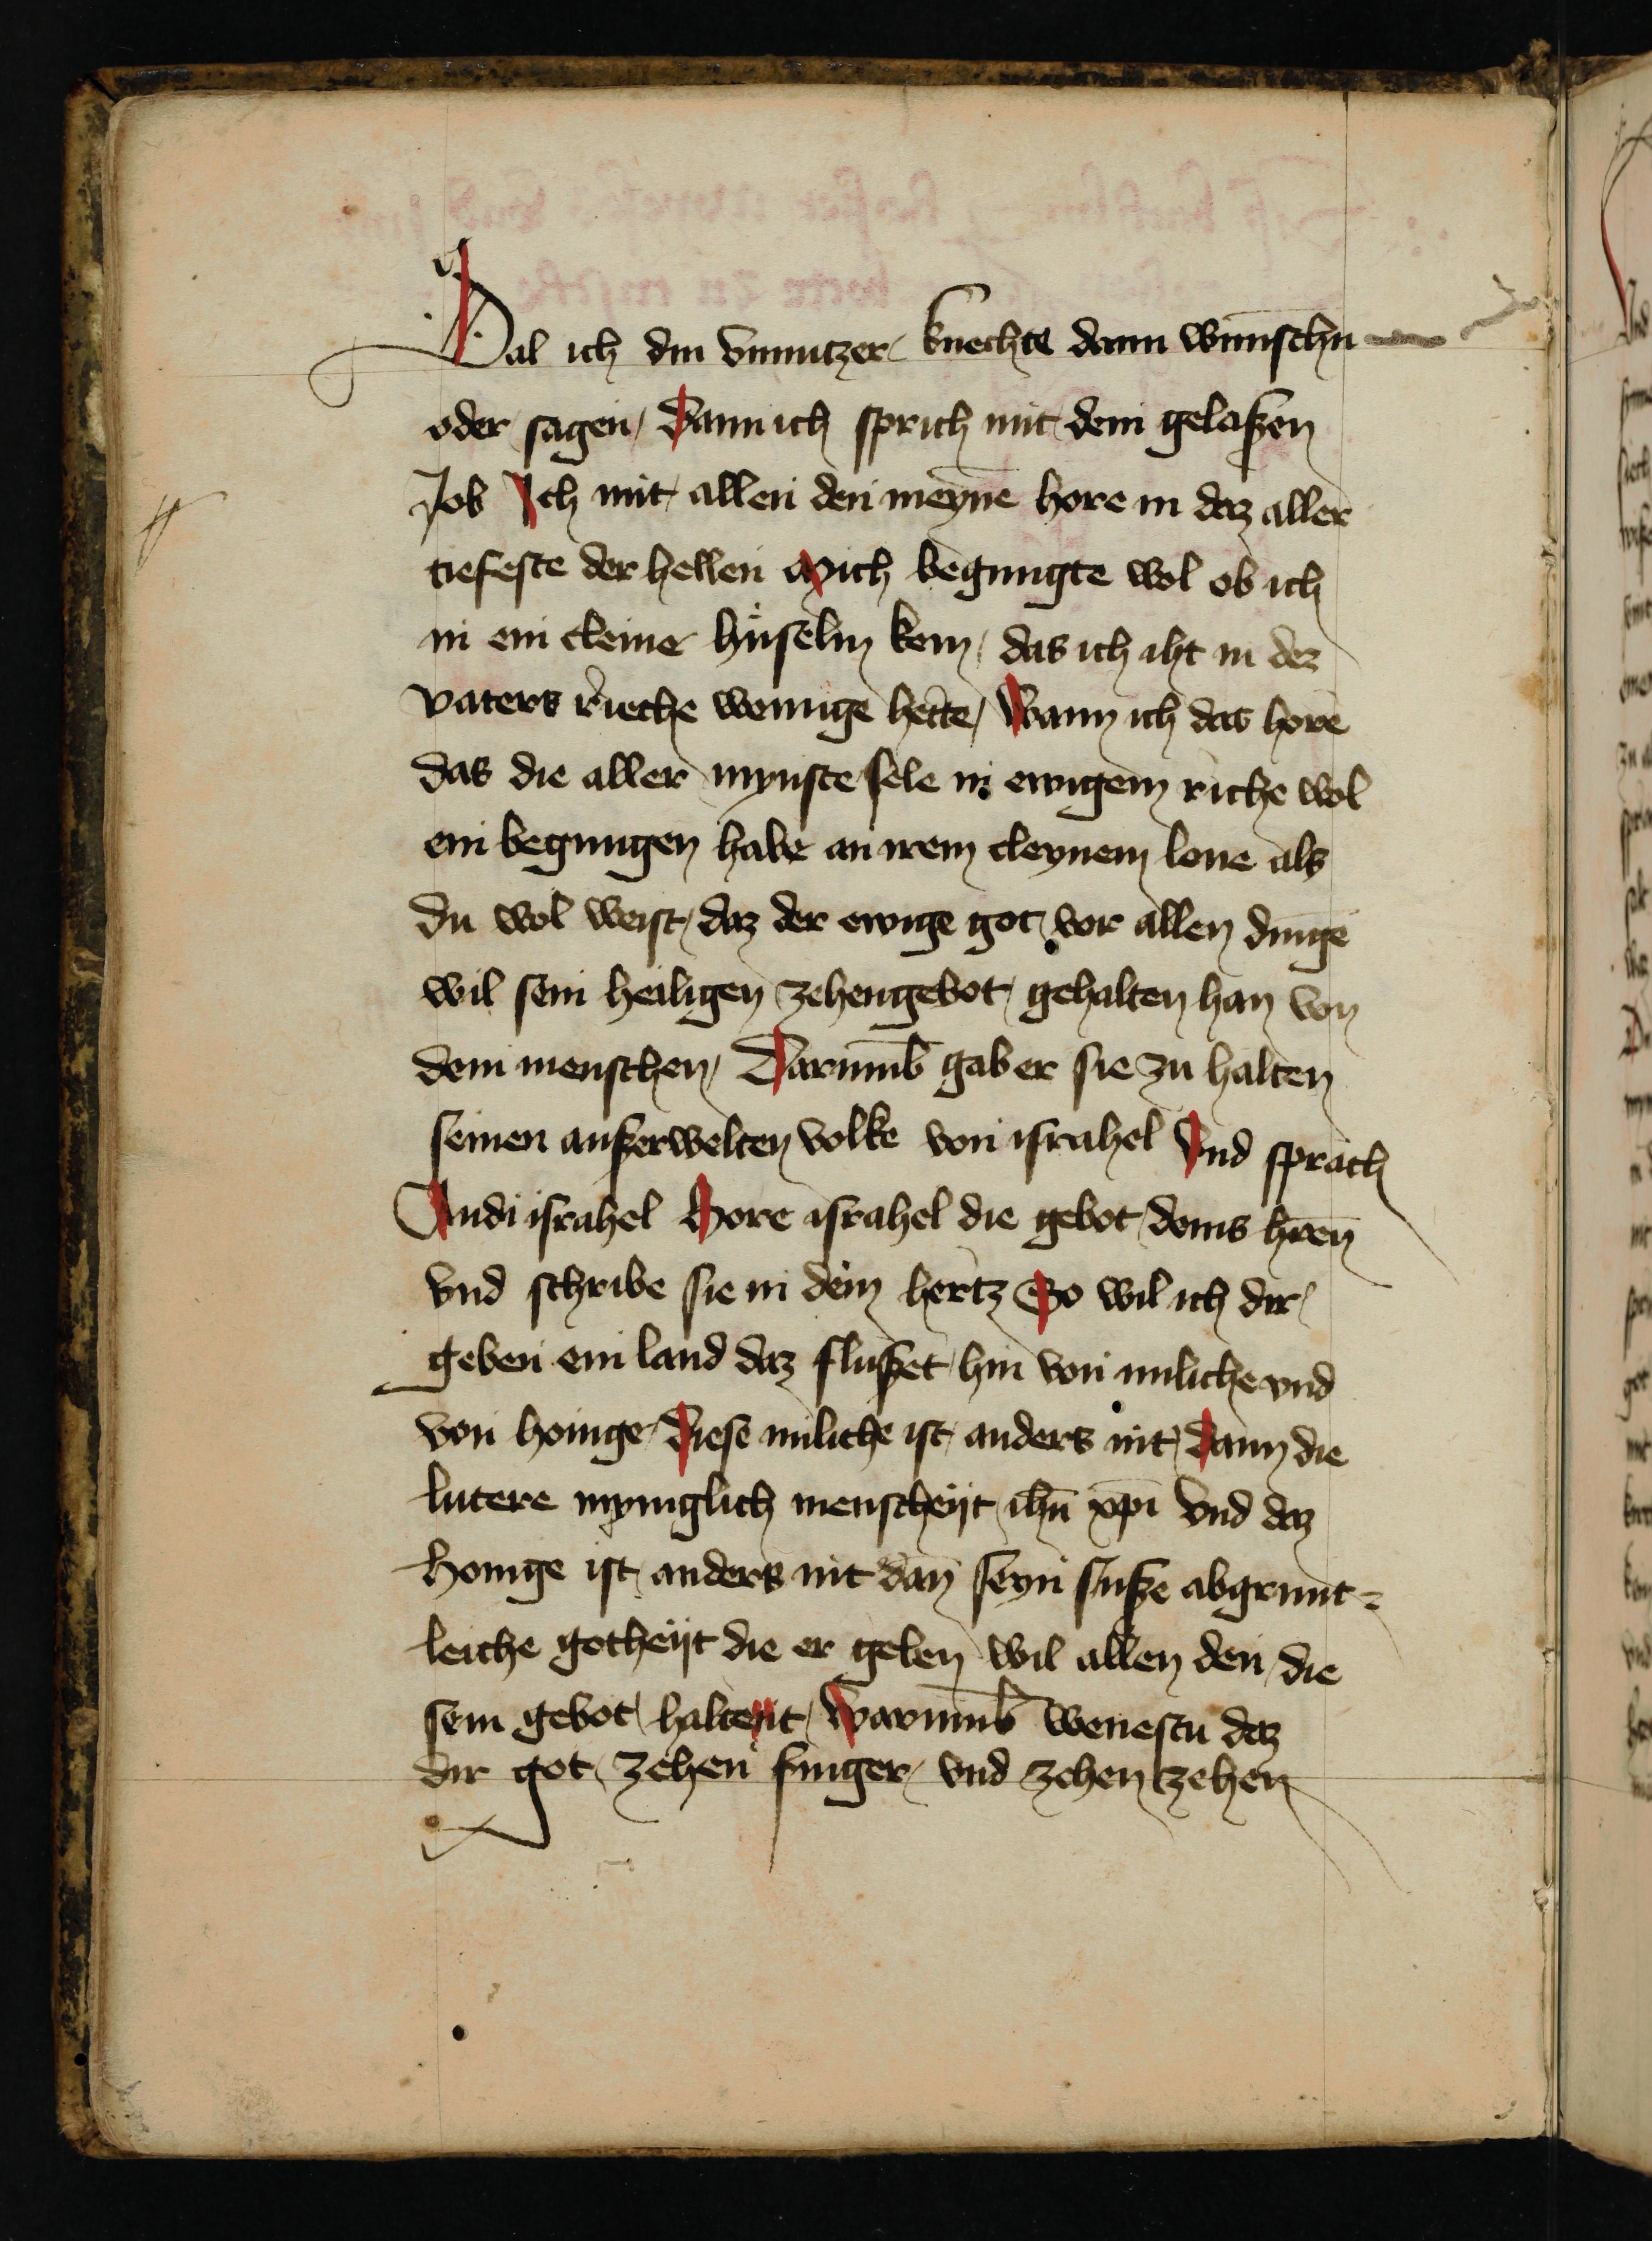 Sal ich din vnnutzer knechte dann wūnschn
oder sagen Dann ich sprich mit dem gelaßen
Job Ich mit allen den meynē hore in daz aller
tiefeste der hellen Mich begnugte wol ob ich
in ein cleine hüselin kem das ich iht in dez
vaters rieche wonunge hette Wann ich das hore
das die aller mynste sele in ewigem riche wol
ein begnugen habe an irem cleynem lone als
du wol weist daz der ewige got vor allen dingē
wil sein heiligen zehengebot gehalten han von
dem menschen Darumb̄ gab er sie zu halten
seinen außerwelten volke von israhel Vnd sprach
Audi israhel Hore israhel die gebot deins hren̄
vnd schribe sie in dein hertz So wil ich dir
geben ein land daz flußet hin von miliche vnd
von honige Diese miliche ist anders nit dann die
lutere myniglich menscheyt ihū xp̄i vnd daz
honige ist anders nit dan̄ seyn suße abgrunt-
leiche gotheyt die er geben wil allen den die
sein gebot haltent Warumb̄ wenestu daz
dir got zehen finger vnd zehen zehen